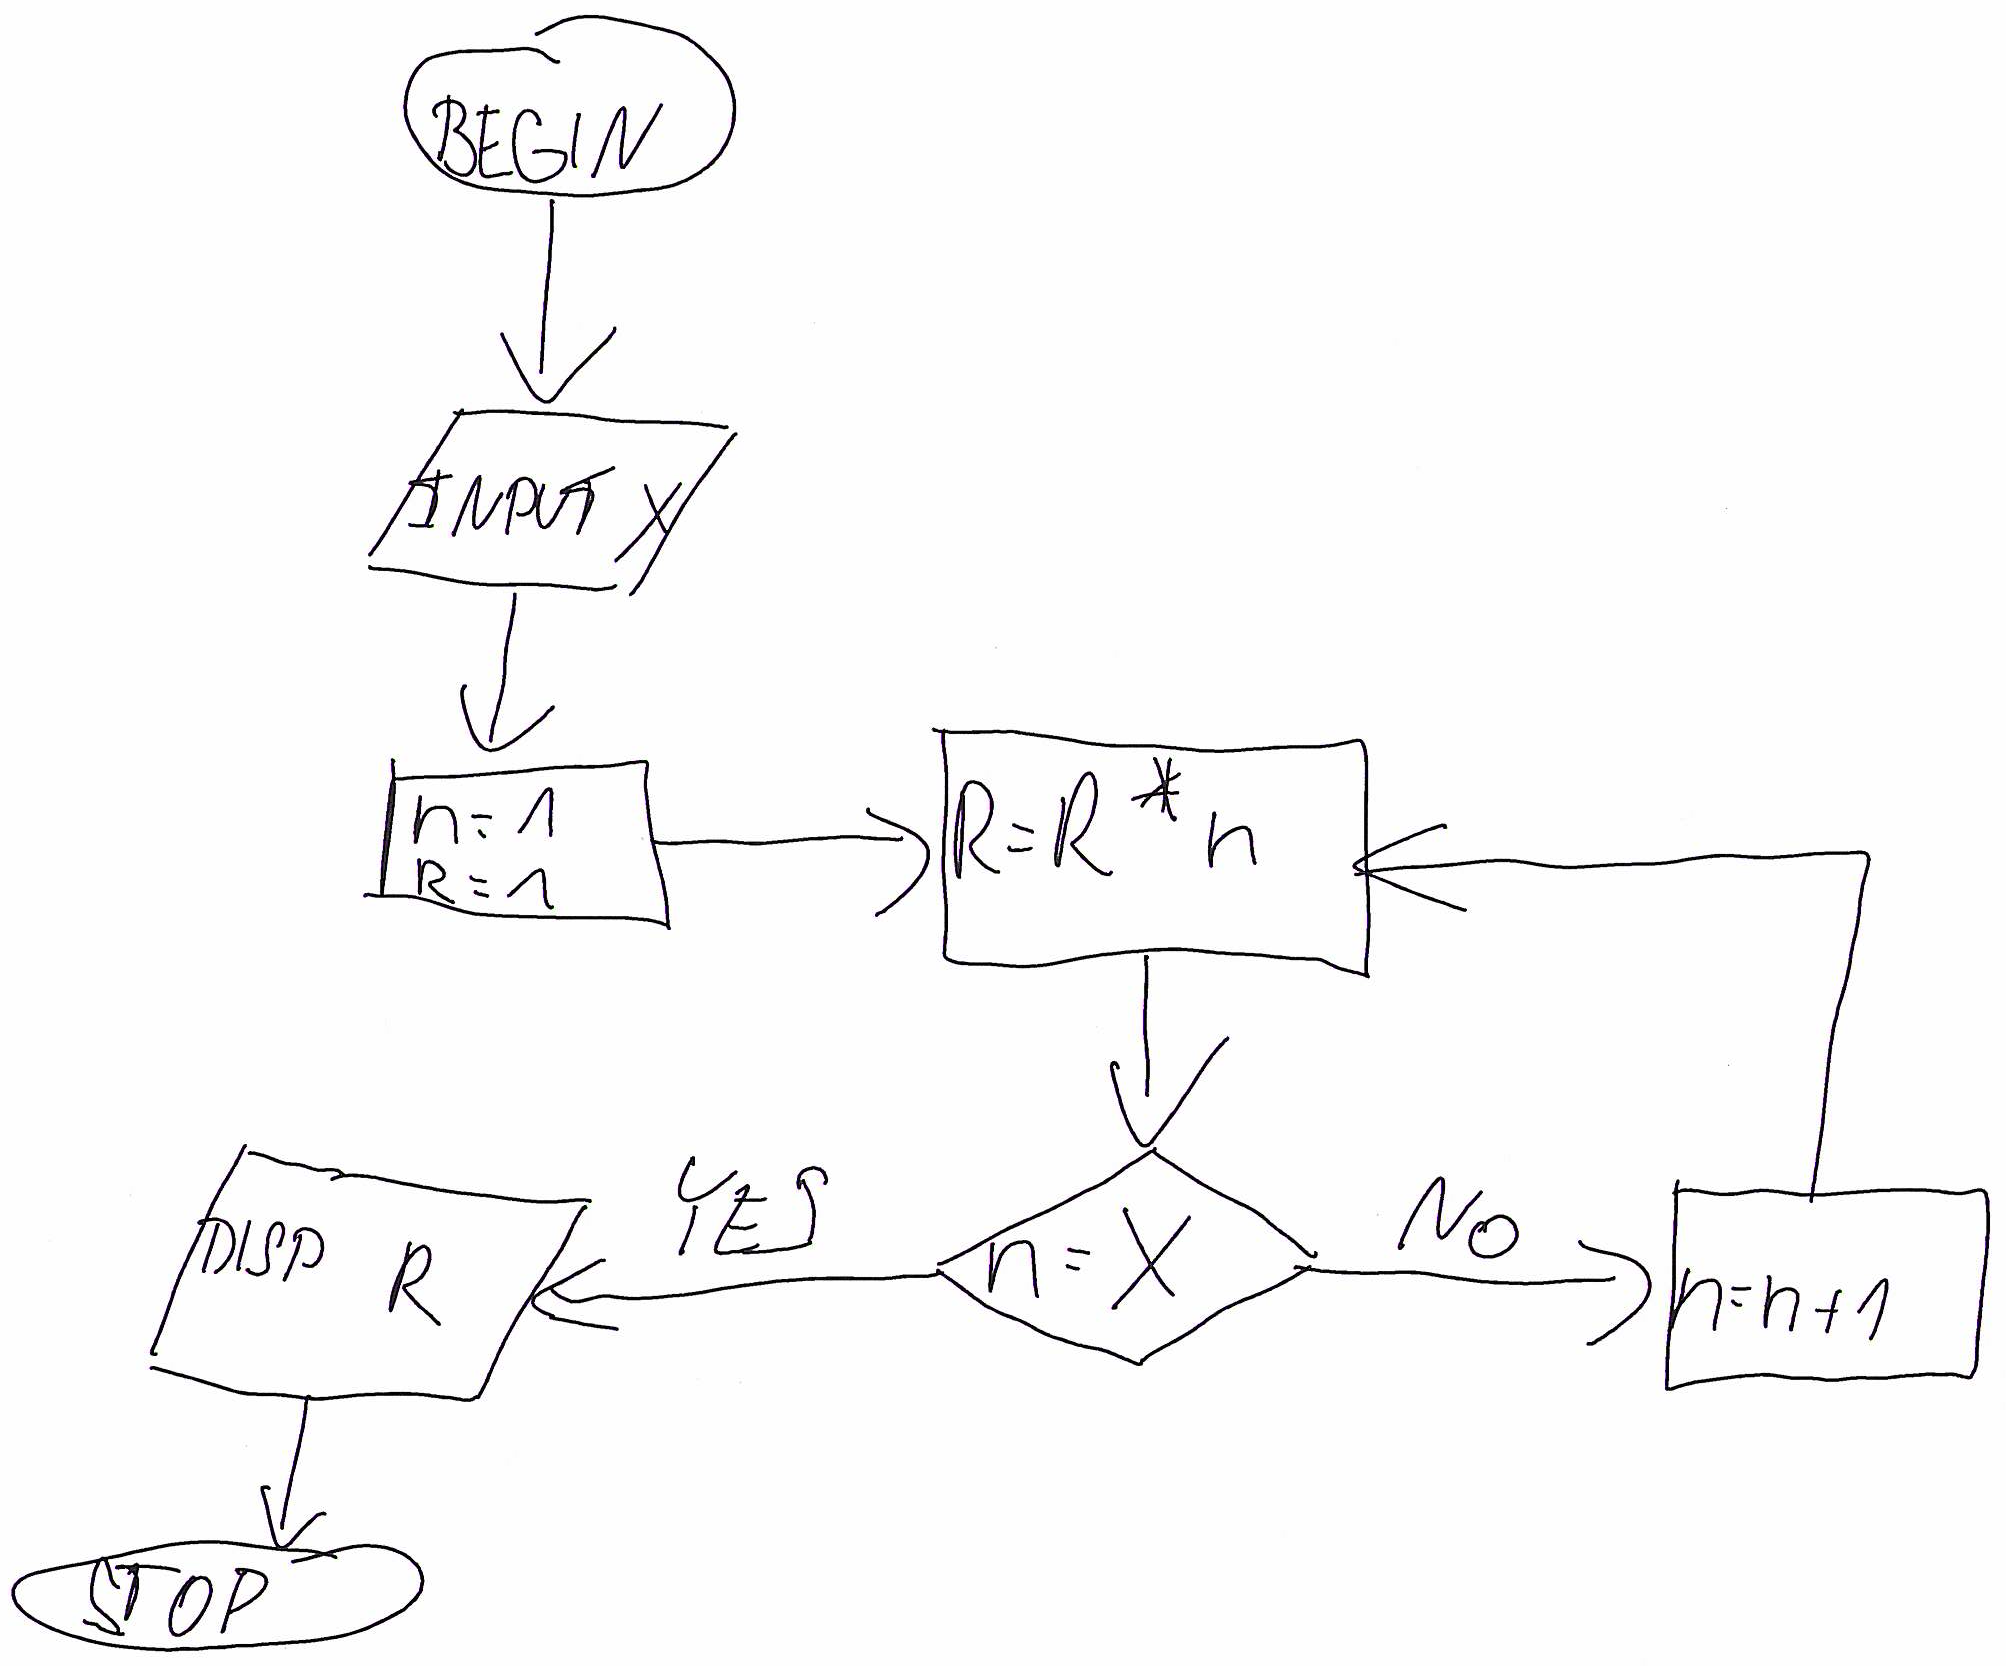 BEGIN
INPUT X
n=1
R=1
R=R*n
n=X
YES
NO
n=n+1
DISP R
STOP